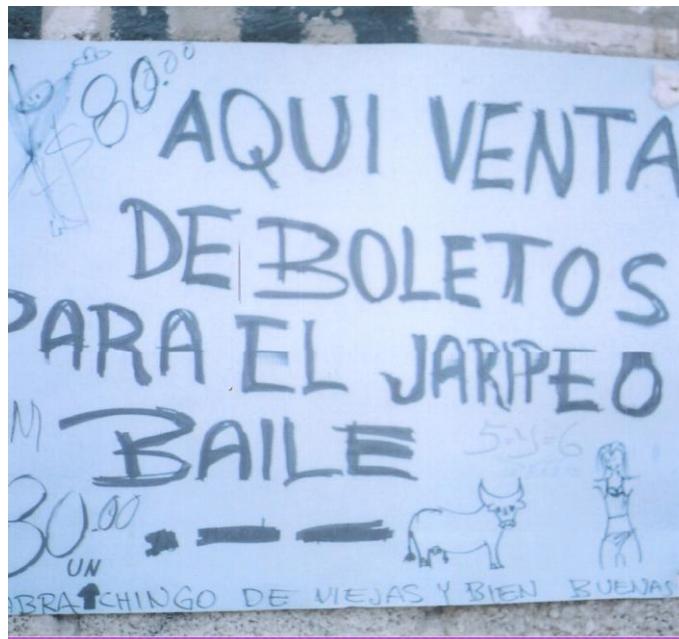 $80.00
AQUI VENTA
DE BOLETOS
PARA EL JARIPEO
M BAILE
5-Y-6
80.00
UN
ABRA CHINGO DE VIEJAS Y BIEN BUENAS